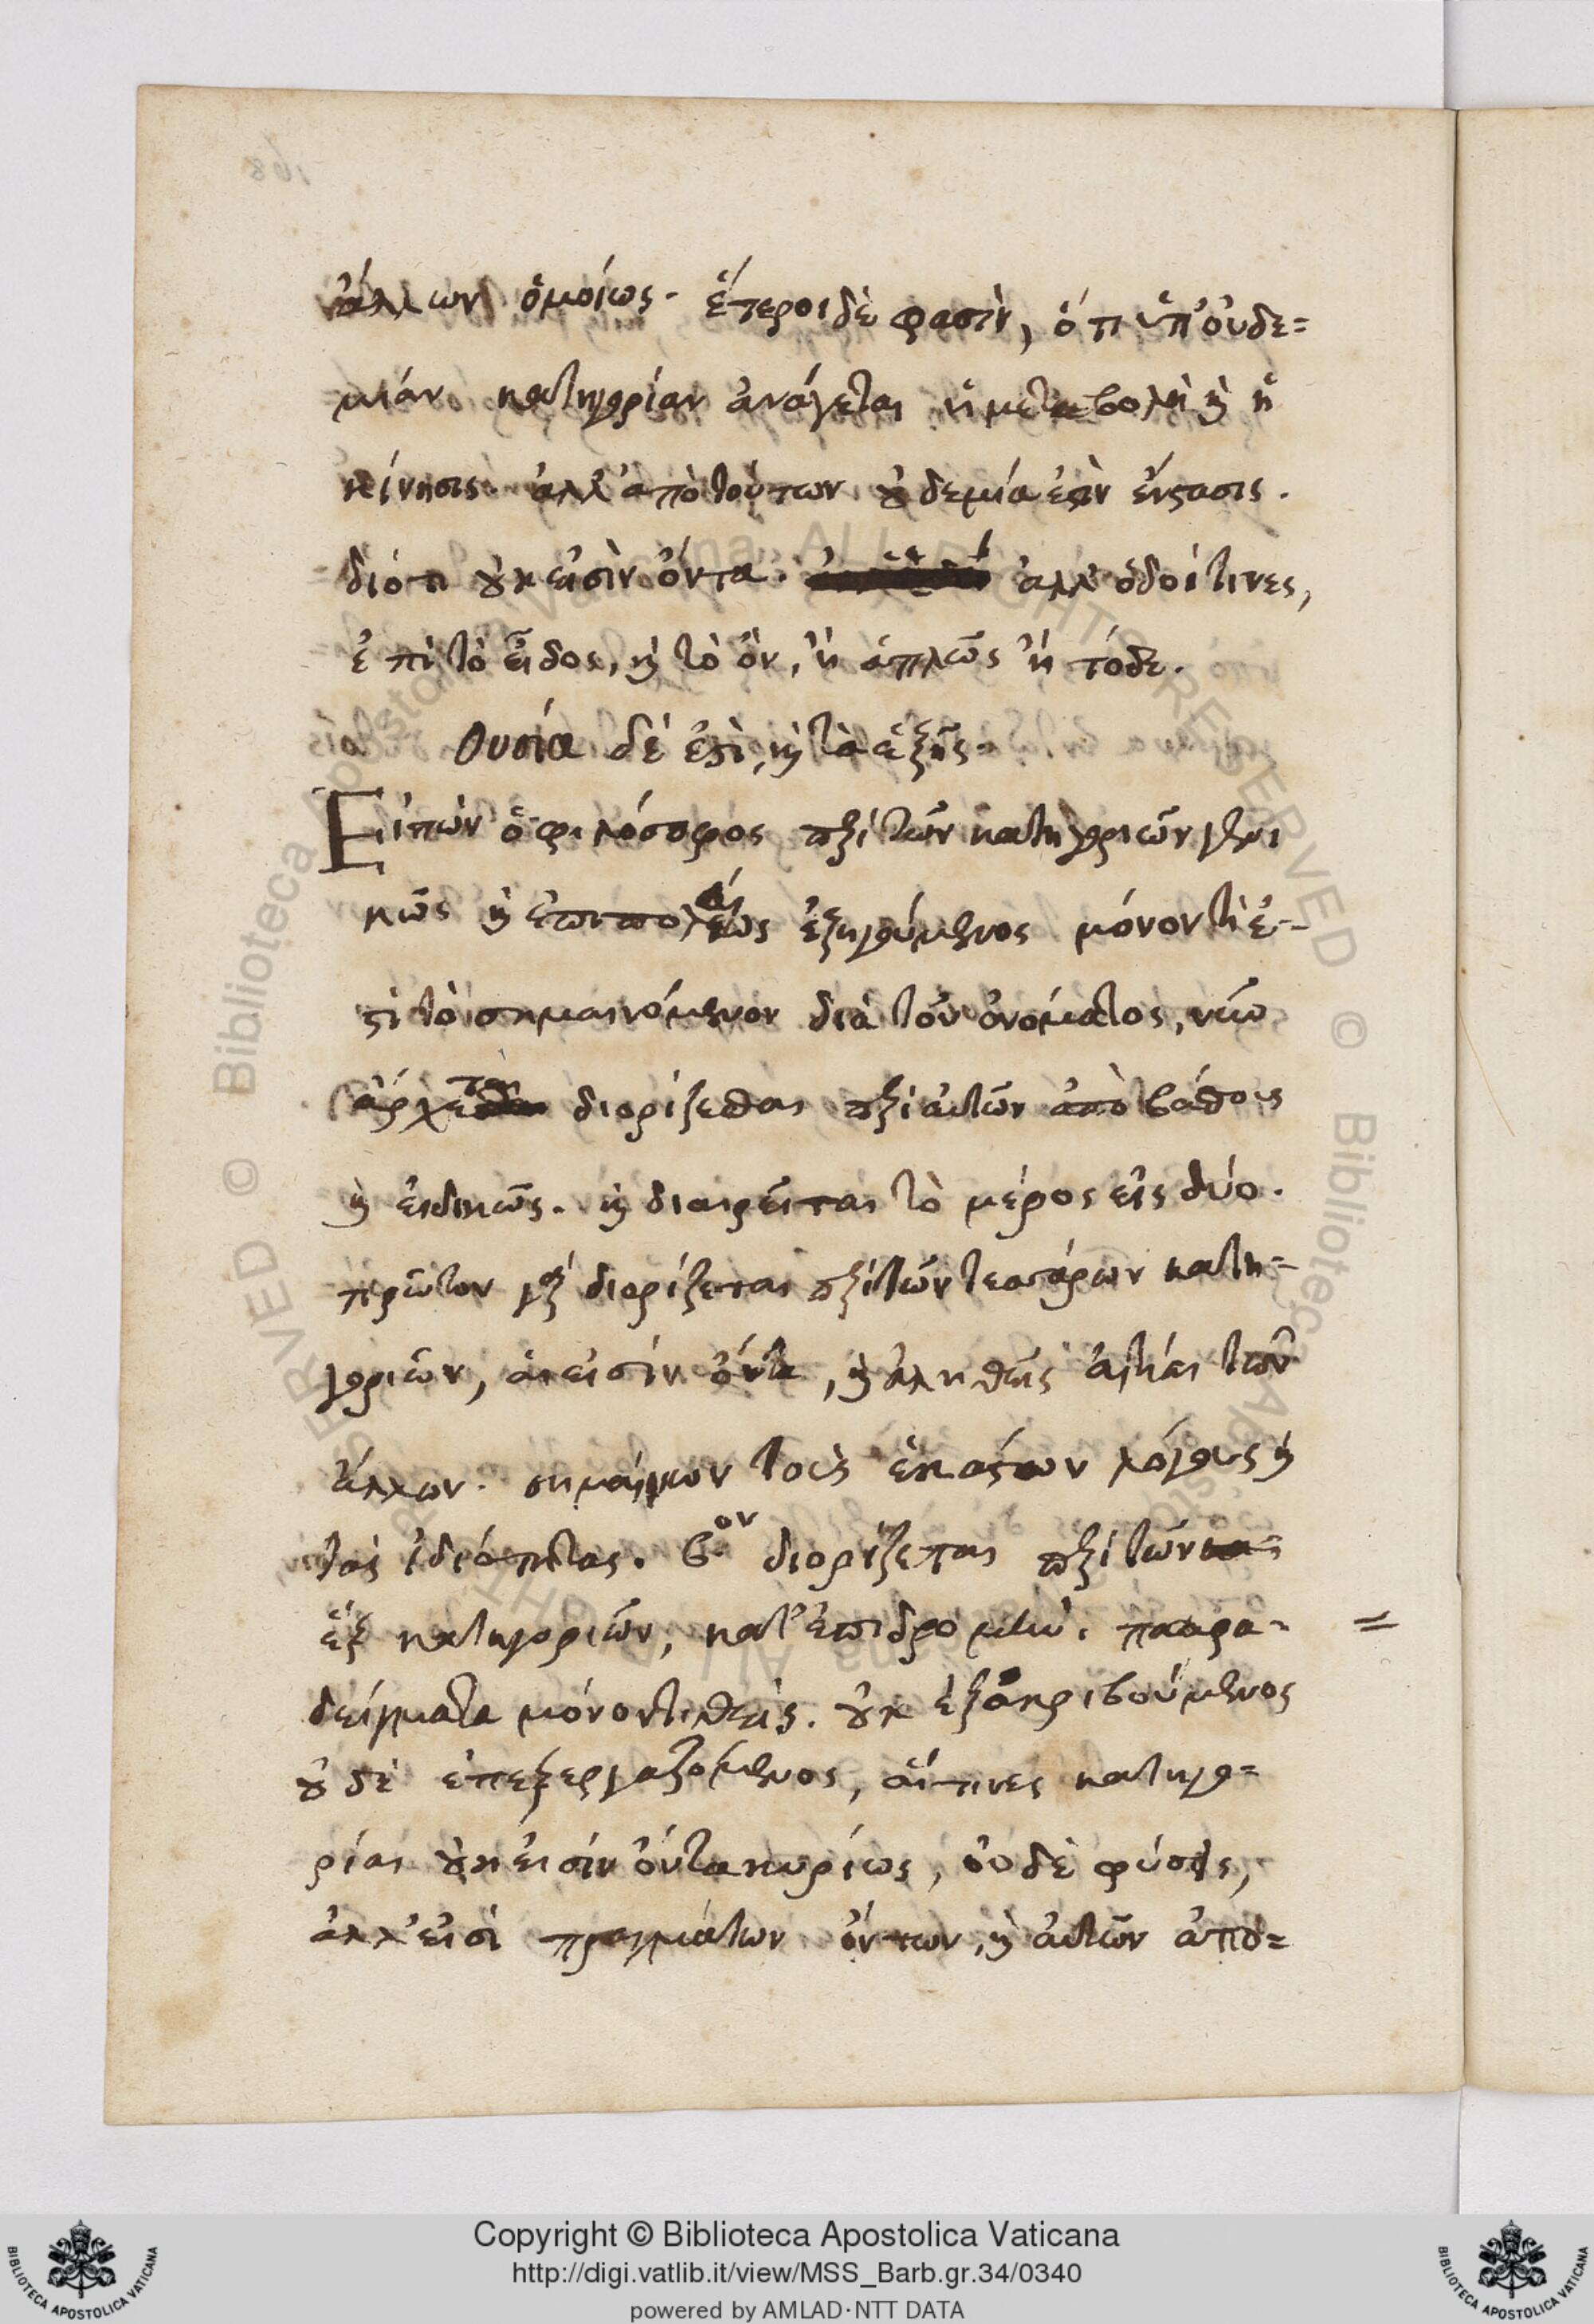 ἄλλων ὁμοίως. ἕτεροι δὲ φασὶν, ὅτι ὑπ' οὐδε=
μιάν κατηγορίαν ἀνάγεται ἡ μεταβολὴ καὶ ἡ
κίνησις. ἀλλ' ἀπὸ τούτων οὐδεμία ἐστὶν ἔνστασις.
διότι οὐκ εἰσὶν ὄντα. ἀλλ' ὁδοί τινες,
ἐπὶ τὸ εἶδος, καὶ τὸ ὂν, ἢ ἁπλῶς ἢ τόδε.
Ουσία δέ ἐστι, καὶ τὰ ἑξῆς.
Εἰπών ὁ φιλόσοφος περὶ τῶν κατηγοριῶν γενι
κῶς καὶ ἐξηγούμενος μόνον τί ἐ-
στὶ τὸ σημαινόμενον διὰ τοῦ ὀνόματος, νῦν
ἄρχεται διορίζεσθαι περὶ αὐτῶν ἀπὸ βάθους
καὶ εἰδικῶς. καὶ διαιρεῖται τὸ μέρος εἰς δύο.
πρῶτον γὰρ διορίζεται περὶ τῶν τεσσάρων κατη-
γοριῶν, αἳ εἰσίν ὄντα, καὶ ἀληθεῖς αἰτίαι τῶν
ἄλλων. τοὺς ἑκάστων λόγους καὶ
τὰς ἰδιότητας. βον διορίζεται περὶ τῶν
ἓξ κατηγοριῶν, κατ' ἐπιδρομὴν. παρα-
δείγματα μόνον τιθεὶς. οὐκ ἐξακριβούμενος
οὐδὲ ἐπεξεργαζόμενος, αἵτινες κατηγο=
ρίαι οὐκ εἰσίν ὄντα κυρίως, οὐδὲ φύσεις,
ἀλλ' εἰσὶ πραγμάτων ὄντων, καὶ αὐτῶν ἀπο=
Copyright © Biblioteca Apostolica Vaticana
http://digi.vatlib.it/view/MSS_Barb.gr.34/0340
powered by AMLAD·NTT DATA
BIBLIOTECA APOSTOLICA VATICANA
BIBLIOTECA APOSTOLICA VATICANA